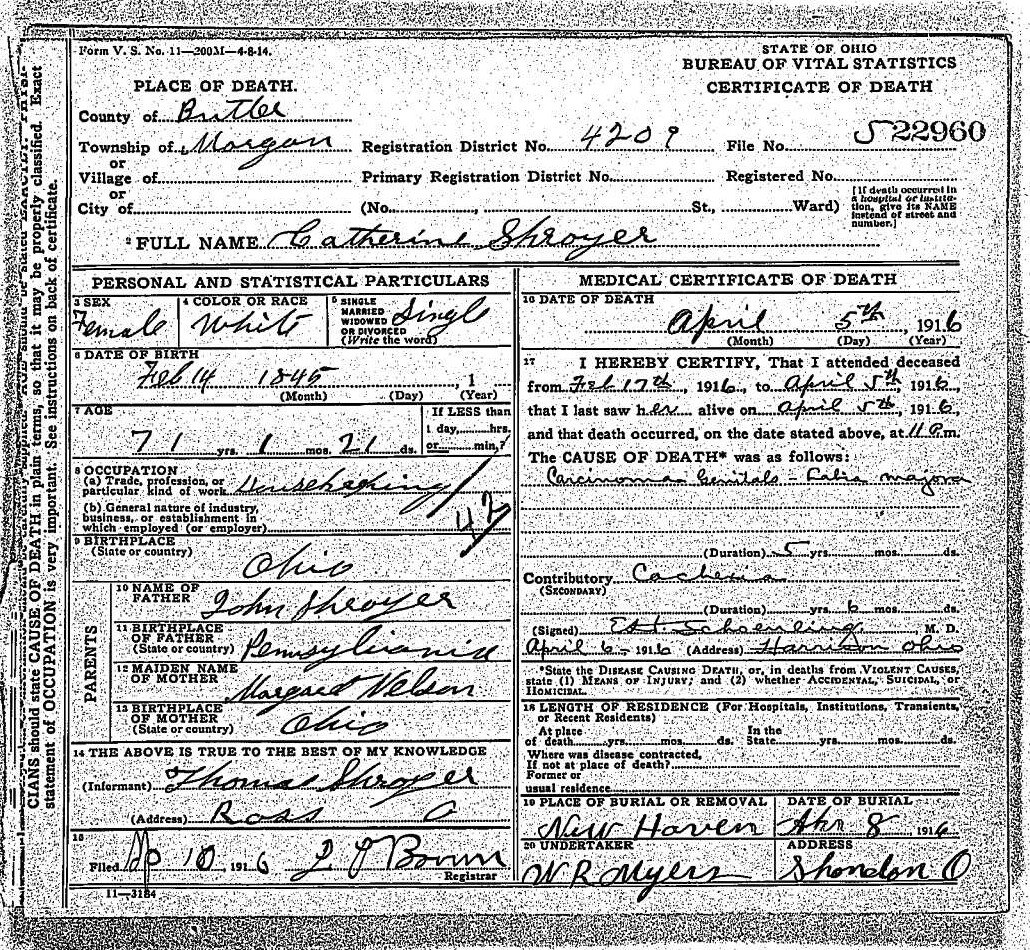 Form V. S. No. 11—200M—4-8-14.
STATE OF OHIO
BUREAU OF VITAL STATISTICS
CERTIFICATE OF DEATH
PLACE OF DEATH.
County of Butler
Township of Morgan Registration District No. 4209 File No. 522960
or
Village of Primary Registration District No. Registered No.
or
City of (No. , St., Ward) [If death occurred in a hospital or institution, give its NAME instead of street and number.]
2 FULL NAME Catherine Shroyer
PERSONAL AND STATISTICAL PARTICULARS
3 SEX Female
4 COLOR OR RACE White
5 SINGLE MARRIED WIDOWED OR DIVORCED (Write the word) Single
6 DATE OF BIRTH
Feb 14 1845 , 1
(Month) (Day) (Year)
7 AGE
71 yrs. 1 mos. 21 ds.
If LESS than
1 day, hrs.
or min.?
8 OCCUPATION
(a) Trade, profession, or
particular kind of work Housekeeping
(b) General nature of industry,
business, or establishment in
which employed (or employer)
9 BIRTHPLACE
(State or country)
Ohio
PARENTS
10 NAME OF FATHER John Shroyer
11 BIRTHPLACE OF FATHER (State or country) Pennsylvania
12 MAIDEN NAME OF MOTHER Margaret Nelson
13 BIRTHPLACE OF MOTHER (State or country) Ohio
14 THE ABOVE IS TRUE TO THE BEST OF MY KNOWLEDGE
(Informant) Thomas Shroyer
(Address) Ross O
15
Filed Ap 10, 1916
Registrar
11—3184
MEDICAL CERTIFICATE OF DEATH
16 DATE OF DEATH
April 5th, 1916
(Month) (Day) (Year)
17 I HEREBY CERTIFY, That I attended deceased
from Feb 17th, 1916, to April 5th, 1916,
that I last saw her alive on April 5th, 1916,
and that death occurred, on the date stated above, at 11 P.m.
The CAUSE OF DEATH* was as follows:
Carcinoma Genitals - Labia majora
(Duration) 5 yrs. mos. ds.
Contributory Cachexia
(SECONDARY)
(Duration) yrs. 6 mos. ds.
(Signed) M. D.
April 6 1916 (Address) Harrison Ohio
*State the DISEASE CAUSING DEATH, or, in deaths from VIOLENT CAUSES,
state (1) MEANS OF INJURY; and (2) whether ACCIDENTAL, SUICIDAL, or
HOMICIDAL.
18 LENGTH OF RESIDENCE (For Hospitals, Institutions, Transients,
or Recent Residents)
At place of death yrs. mos. ds. In the State yrs. mos. ds.
Where was disease contracted,
If not at place of death?
Former or
usual residence
19 PLACE OF BURIAL OR REMOVAL New Haven
DATE OF BURIAL 8, 1916
20 UNDERTAKER W R Myers
ADDRESS Shandon O
CIANS should state CAUSE OF DEATH in plain terms, so that it may be properly classified. Exact
statement of OCCUPATION is very important. See instructions on back of certificate.